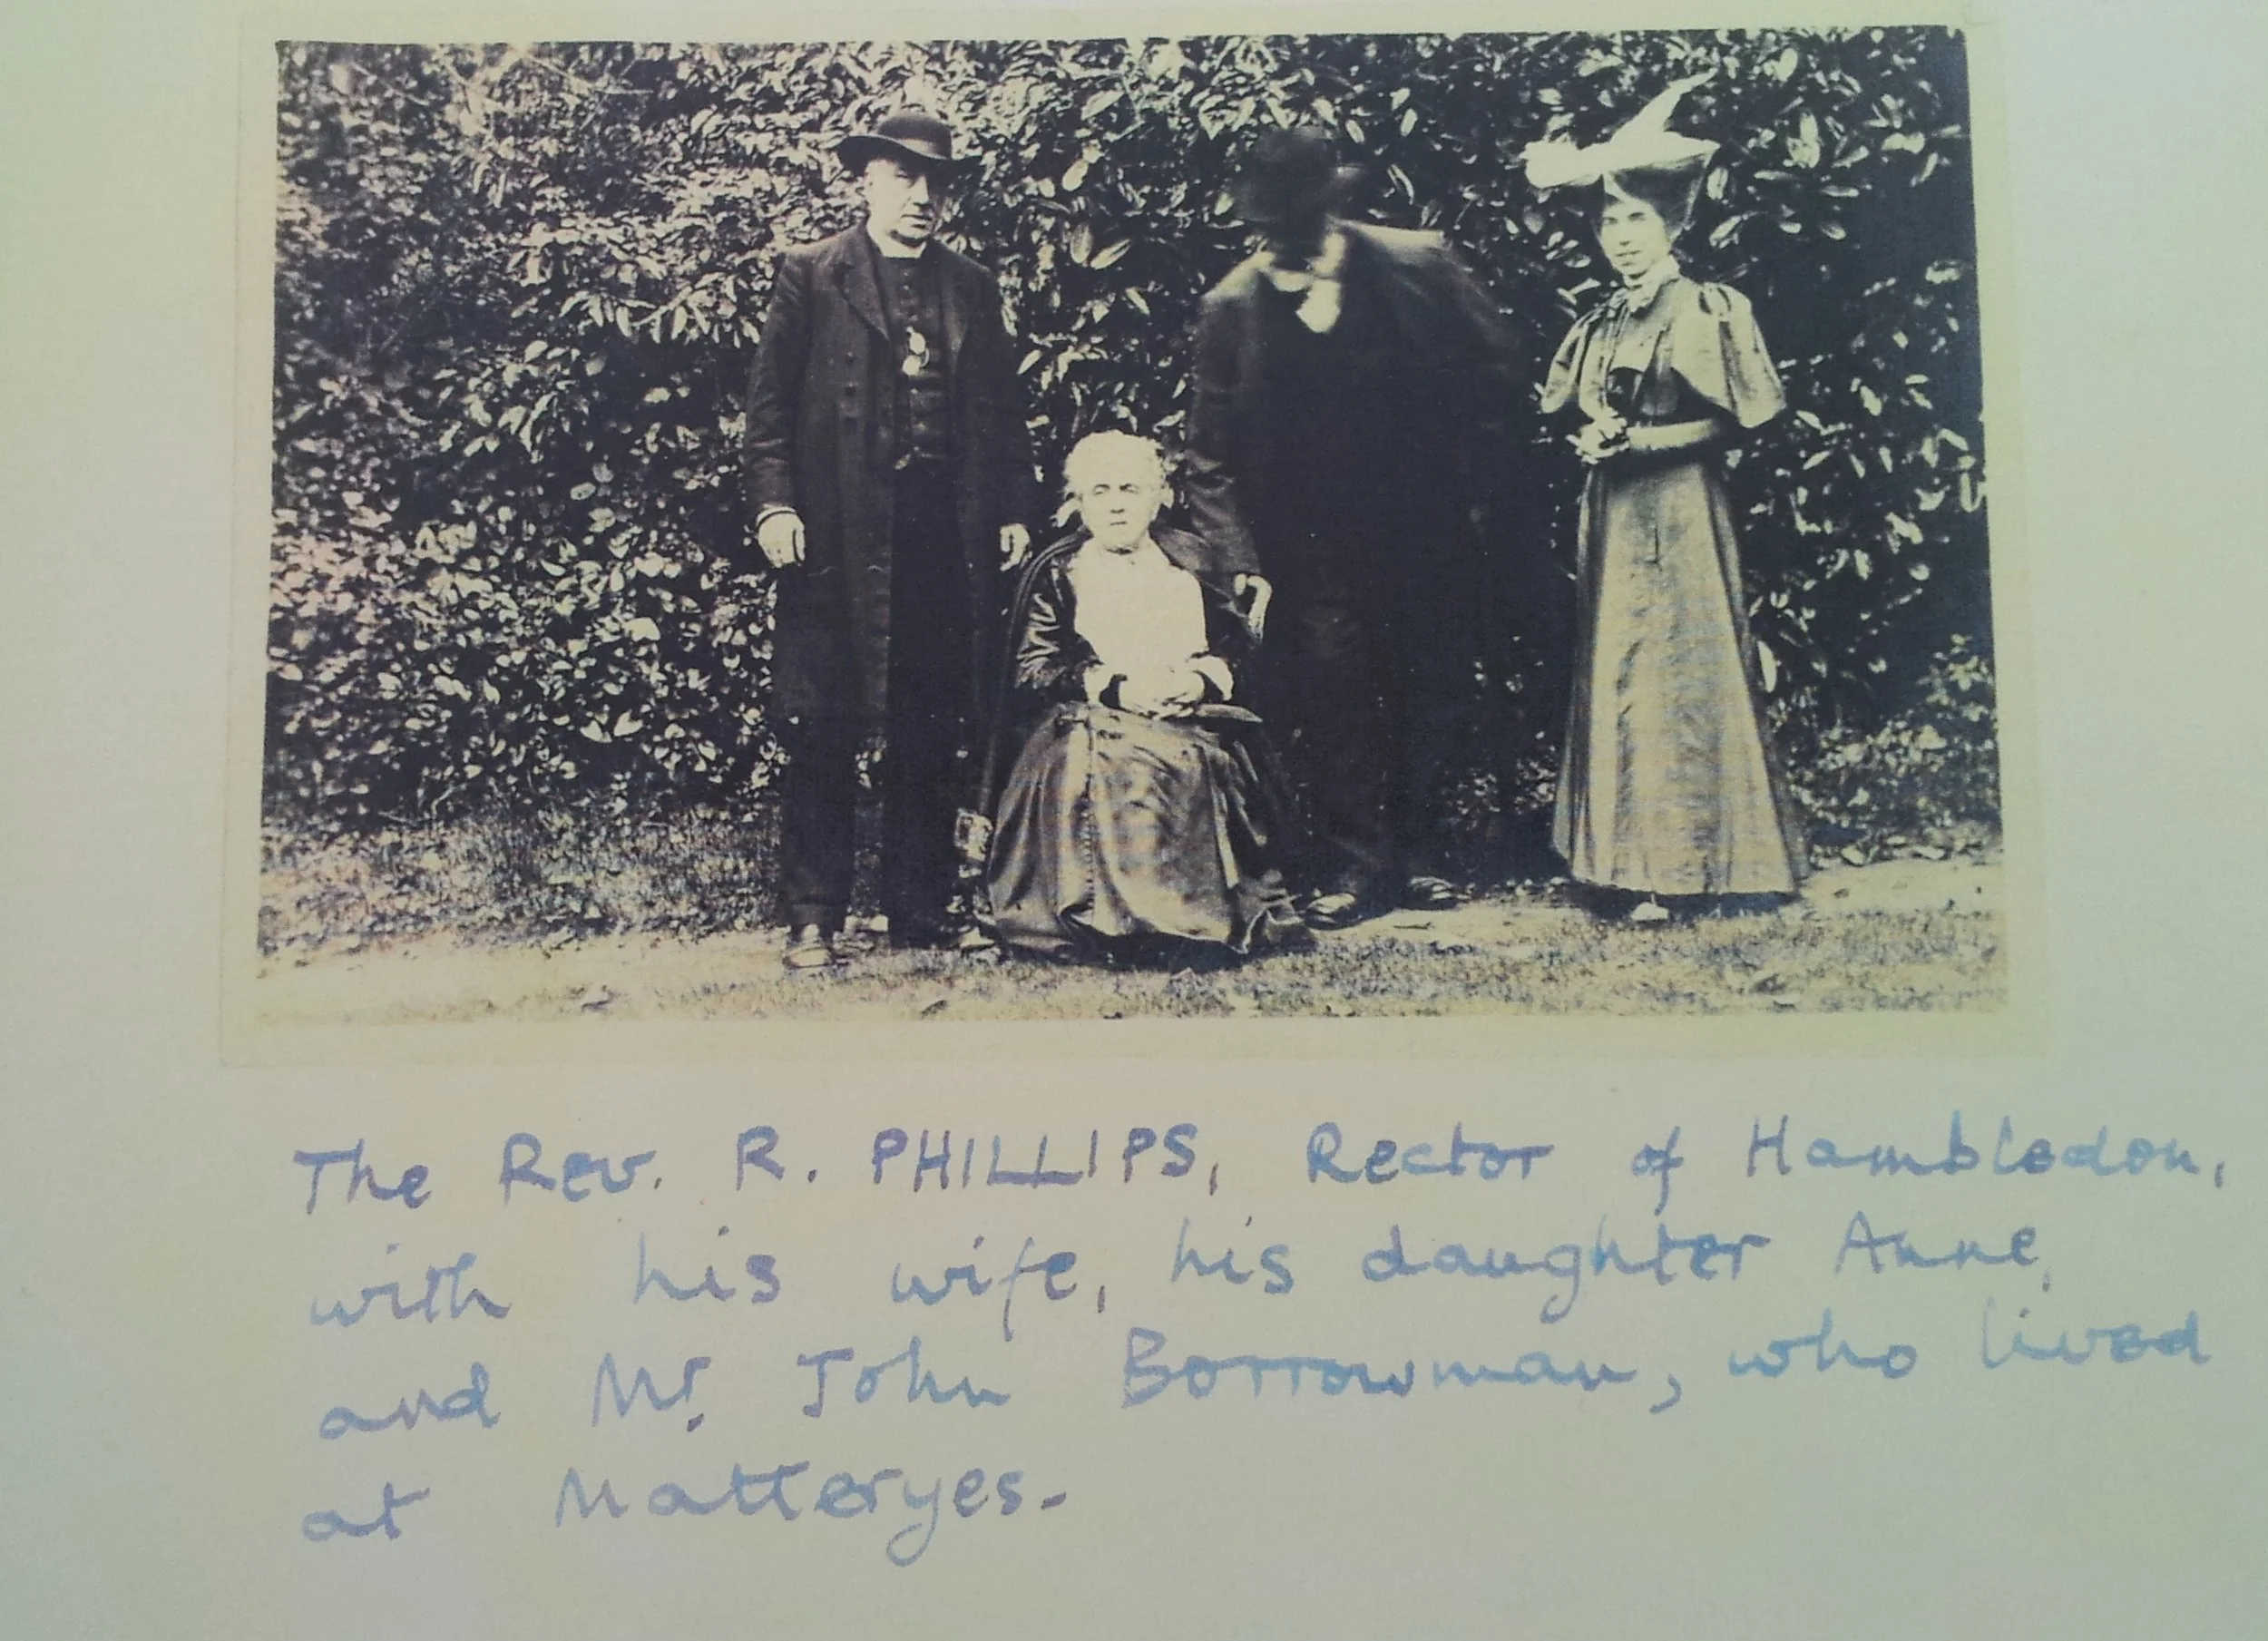 The Rev. R. PHILLIPS, Rector of Hambledon,
with his wife, his daughter Anne,
and Mr. John Borrowman, who lived
at Matteryes.